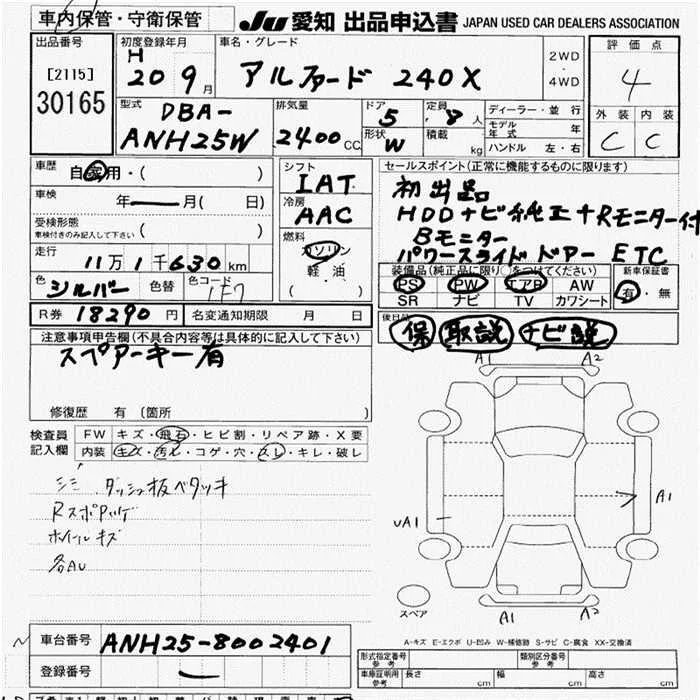 車内保管・守衛保管
JU 愛知 出品申込書 JAPAN USED CAR DEALERS ASSOCIATION
出品番号
[2115]
30165
初度登録年月
H
20 9月
車名・グレード
アルファード 240X
2WD
・
4WD
評価点
4
外装 内装
C C
型式
DBA-
ANH25W
排気量
2400CC
ドア
5
形状
W
定員
8人
積載
kg
ディーラー・並行
モデル年式 年
ハンドル 左・右
車歴
自家用・( )
車検
年 月( 日)
受検形態
車検付きのみ記入して下さい ( )
走行
11万1千630km
色
シルバー
色替
色コード
1F7
R券 18290円
名変通知期限 月 日
シフト
IAT
冷房
AAC
燃料
ガソリン
軽油
( )
セールスポイント(正常に機能するものに限ります)
初出品
HDD+ビ純正+Rモニター付
Bモニター
パワースライドドアー ETC
装備品(純正品に限り○をつけてください)
PS PW エアB AW
SR ナビ TV カワシート
新車保証書
有・無
後日品
保 取説 ナビ説
注意事項申告欄(不具合内容等は具体的に記入して下さい)
スペアーキー有
修復歴 有 (箇所 )
検査員
記入欄
FW キズ・飛石・ヒビ割・リペア跡・X要
内装 キズ・汚れ・コゲ・穴・スレ・キレ・破レ
シミ ダッシュ板ベタツキ
ホイールキズ
各AU
A1 A2
A1
UA1
A1 A2
スペア
A-キズ E-エクボ U-凹み W-補修跡 S-サビ C-腐食 XX-交換済
車台番号 ANH25-8002401
登録番号 —
形式指定番号
参考
類別区分番号
参考
車庫証明用
参考
長さ cm
幅 cm
高さ cm